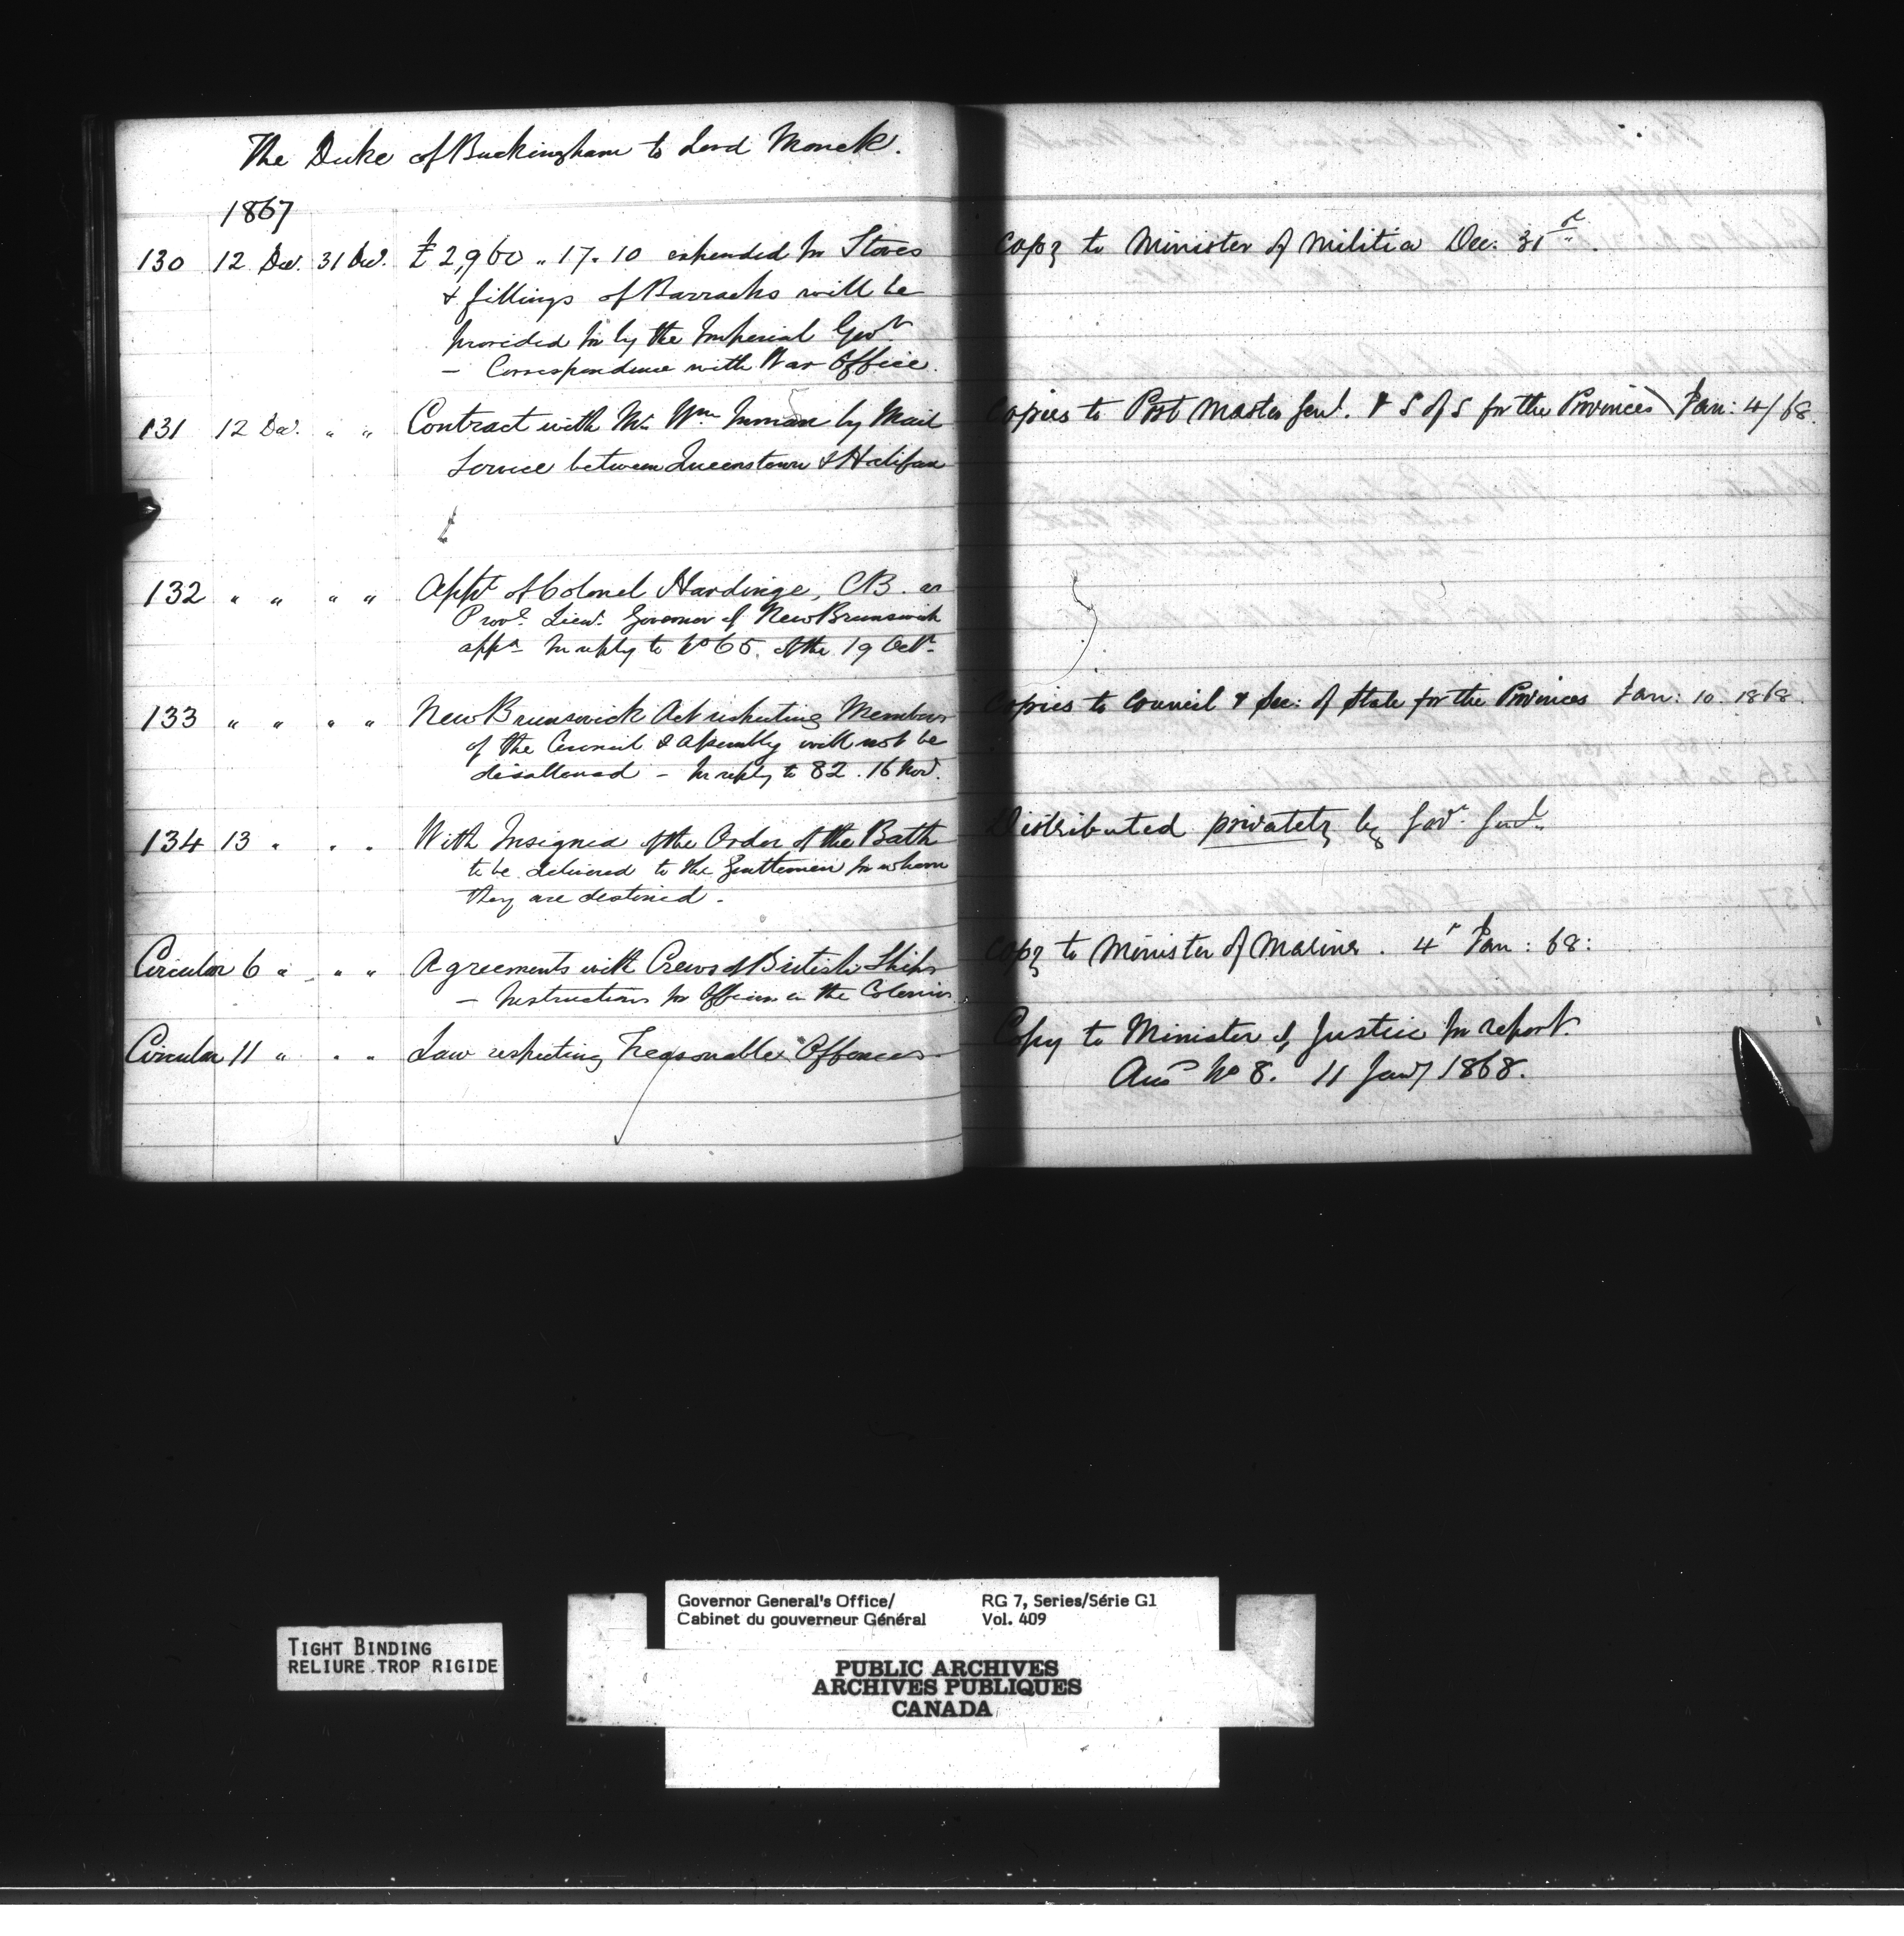 The Duke of Buckingham to Lord Monck.
1867
130 12 Dec. 31 Dec. £2,960 „ 17 . 10 expended for Stores
& fittings of Barracks will be
provided for by the Imperial Govt
— Correspondence with War Office.
Copy to Minister of Militia Dec. 31st.
131 12 Dec. " " Contract with Mr. Wm. Inman by Mail
Service between Queenstown & Halifax
Copies to Post Master Genl. & S of S for the Provinces Jan: 4/68.
132 " " " " Appt of Colonel Hardinge, CB. as
Provl. Lieut. Governor of New Brunswick
appd — In reply to No 65. of the 19 Octr.
133 " " " " New Brunswick Act respecting Members
of the Council & Assembly will not be
disallowed — In reply to 82 . 16 Nov.
Copies to Council & Sec: of State for the Provinces Jan: 10. 1868.
134 13 " " " With Insignia of the Order of the Bath
to be delivered to the Gentlemen for whom
they are destined .
Distributed privately by Gov. Genl.
Circular 6 " " " Agreements with Crews of British Ships
— Instructions for Officers in the Colonies
Copy to Minister of Marine . 4 Jan : 68 :
Circular 11 " " " Law respecting Treasonable Offences
Copy to Minister of Justice for report.
Ansd No 8. 11 Jany 1868.
TIGHT BINDING
RELIURE TROP RIGIDE
Governor General's Office/ RG 7, Series/Série G1
Cabinet du gouverneur Général Vol. 409
PUBLIC ARCHIVES
ARCHIVES PUBLIQUES
CANADA